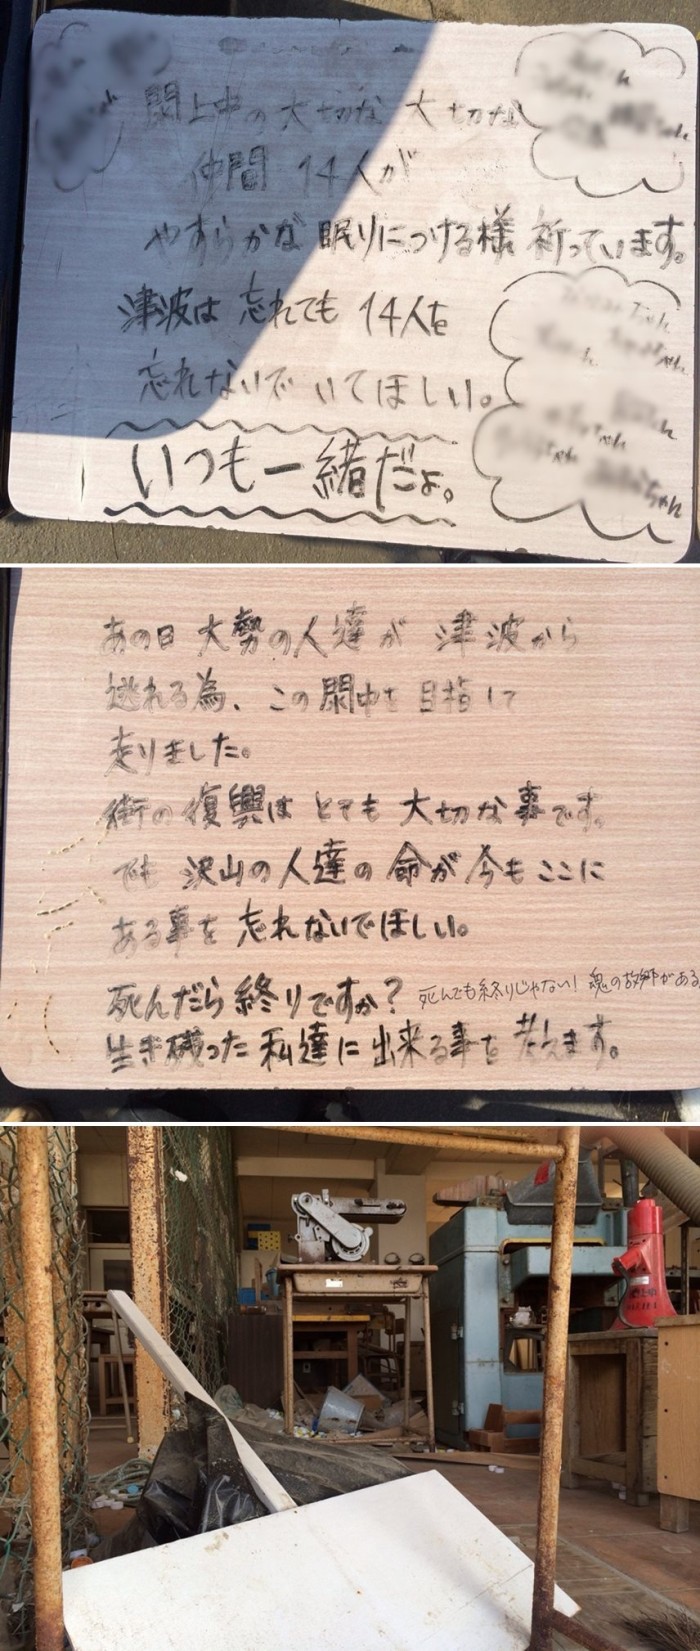 閖上中の大切な大切な
仲間 14人が
やすらかな 眠りにつける様 祈っています。
津波は 忘れても 14人を
忘れないで いてほしい。
いつも一緒だよ。
あの日 大勢の人達が 津波から
逃れる為、この閖中を 目指して
走りました。
街の復興は とても 大切な事です。
でも 沢山の人達の 命が今も ここに
ある事を 忘れないでほしい。
死んだら終りですか？ 死んでも終りじゃない！魂の故郷がある
生き残った 私達に 出来る事を 考えます。